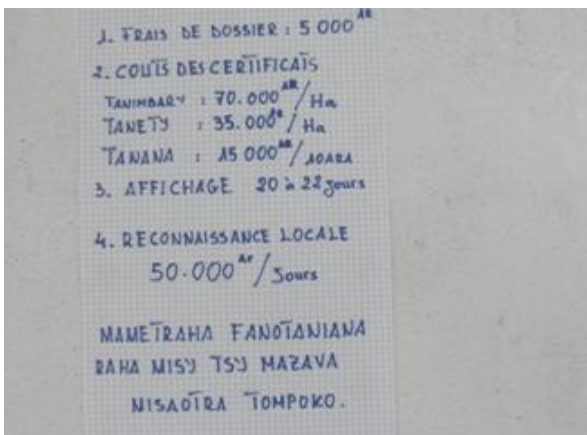 1. FRAIS DE DOSSIER : 5 000 AR
2. COUTS DES CERTIFICATS
TANIMBARY : 70.000 AR / Ha
TANETY : 35.000 AR / Ha
TANANA : 15 000 AR / 10ARA
3. AFFICHAGE 20 à 22 jours
4. RECONNAISSANCE LOCALE
50.000 Ar / Jours
MAMETRAHA FANOTANIANA
RAHA MISY TSY MAZAVA
MISAOTRA TOMPOKO.